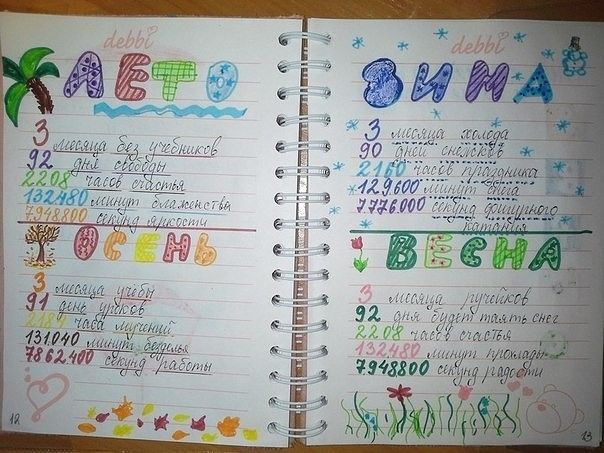 debbi
ЛЕТО
3 месяца без учебников
92 дня свободы
2208 часов счастья
132480 минут блаженства
7948800 секунд яркости
ОСЕНЬ
3 месяца учёбы
91 день уроков
2184 часа мучений
131.040 минут безделья
7862.400 секунд работы
12
debbi
ЗИМА
3 месяца холода
90 дней снежков
2160 часов праздника
129600 минут
7.776.000 секунд фигурного
катания
ВЕСНА
3 месяца ручейков
92 дня будет таять снег
2208 часов счастья
132480 минут прохлады
7948800 секунд радости
13